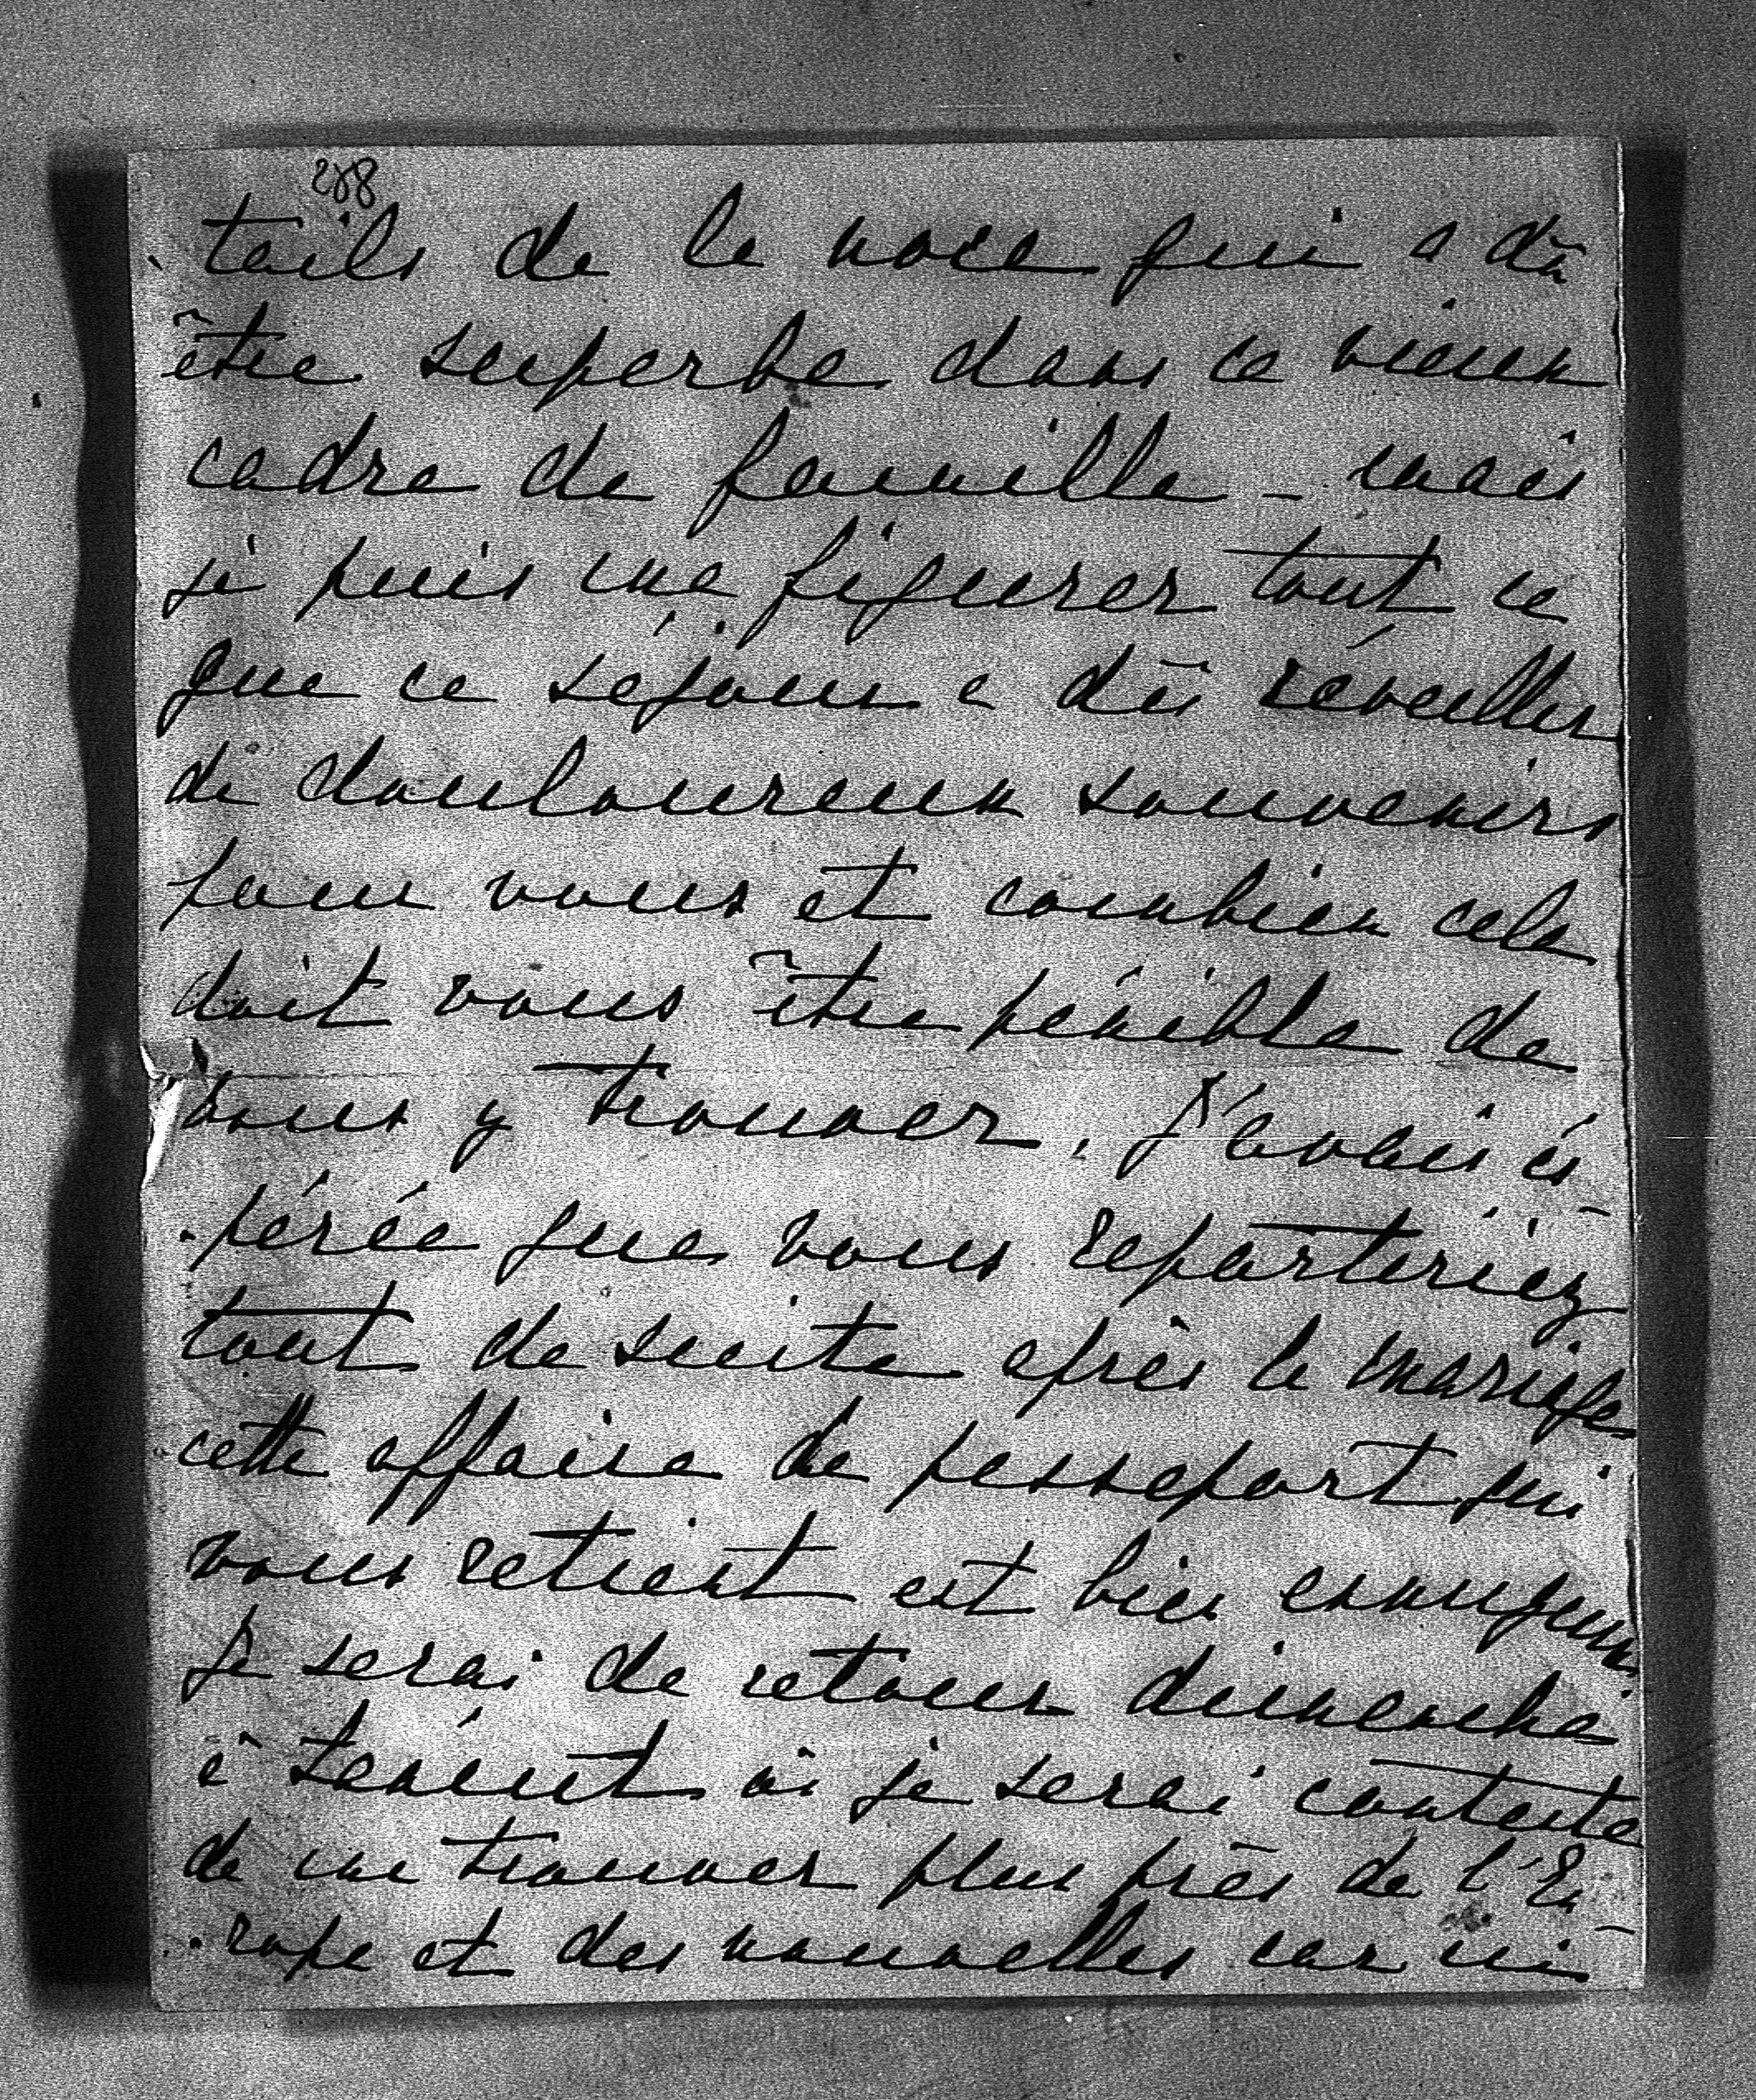 288
tails de la noce qui a dû
être superbe dans ce vieux
cadre de famille – mais
je puis me figurer tout ce
que ce séjour a dû réveiller
de douloureux souvenirs
pour vous et combien cela
doit vous être pénible de
vous y trouver. J'avais es-
pérée que vous repartiriez
tout de suite après le mariage
cette affaire de passeport qui
vous retient est bien ennuyeuse
Je serai de retour dimanche
à où je serai contente
de me trouver plus près de l'Eu-
rope et des nouvelles car ici